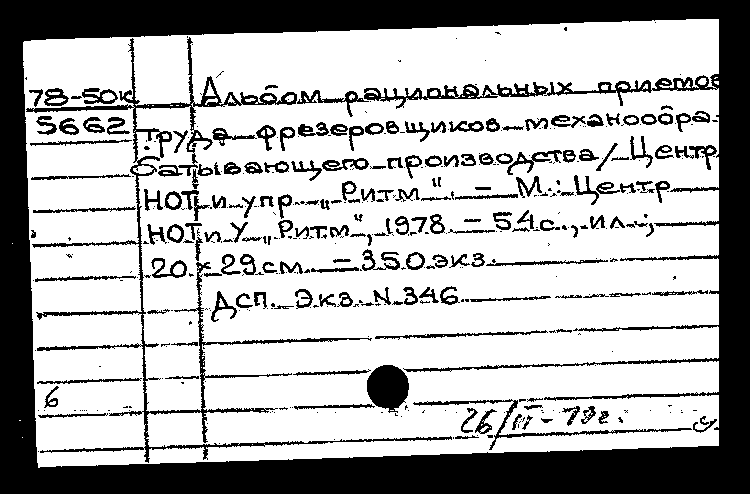 78-50к Альбом рациональных приемов
5662 труда фрезеровщиков механообра-
батывающего производства/ Центр
НОТ и упр. „Ритм". – М.: Центр
НОТ и У „Ритм", 1978. – 54с., ил.;
20 × 29 см. – 350 экз.
Дсп. Экз. N 346
6
26/III-79г.